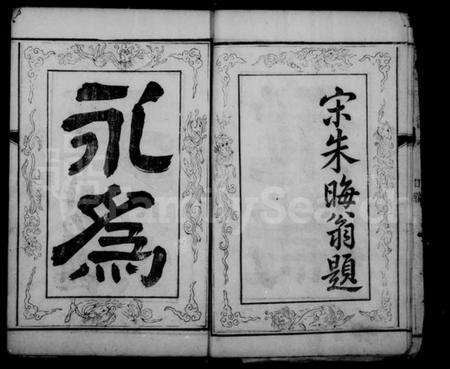 宋朱晦翁題
永為
FamilySearch